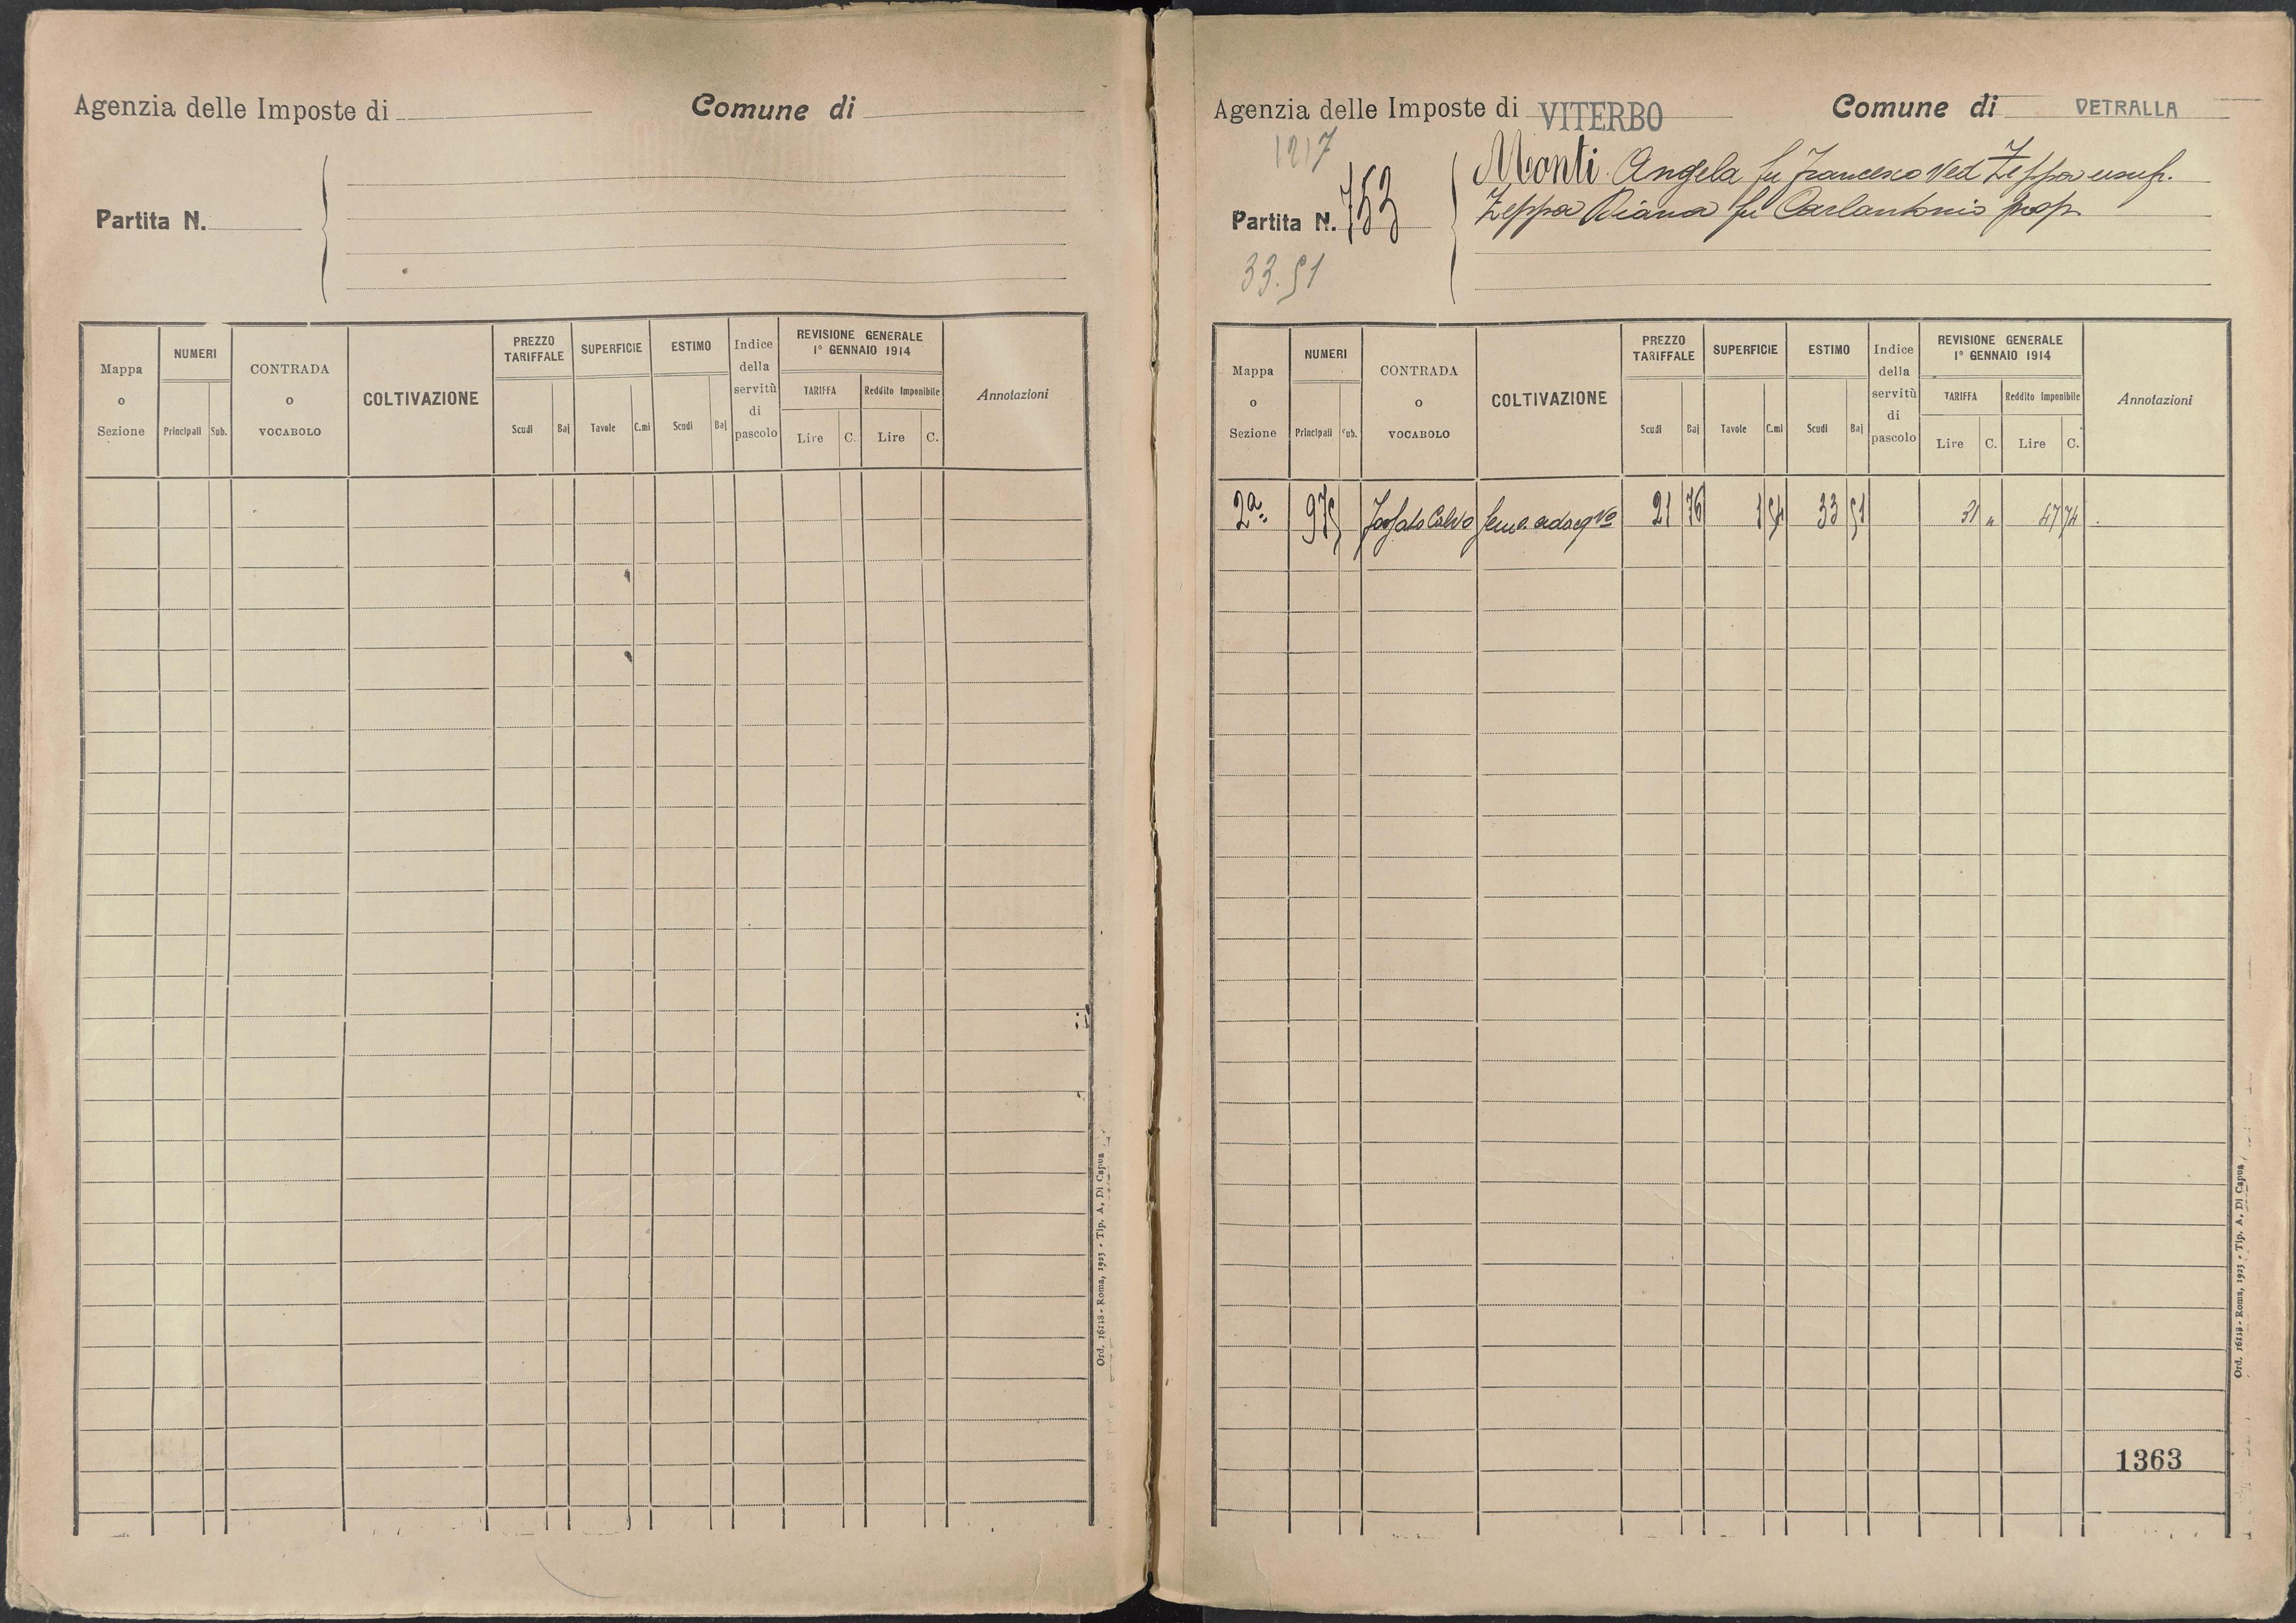 Agenzia delle Imposte di
Comune di
Partita N.
Mappa o Sezione
NUMERI
Principali
Sub.
CONTRADA o VOCABOLO
COLTIVAZIONE
PREZZO TARIFFALE
Scudi
Baj
SUPERFICIE
Tavole
C.mi
ESTIMO
Scudi
Baj
Indice della servitù di pascolo
REVISIONE GENERALE 1° GENNAIO 1914
TARIFFA
Lire
C.
Reddito Imponibile
Lire
C.
Annotazioni
Ord. 16118 - Roma, 1923 - Tip. A. Di Capua
Agenzia delle Imposte di VITERBO
Comune di VETRALLA
1217
Partita N. 753
33.51
Monti Angela fu Francesco Ved Zeppa usuf.
Zeppa Diana fu Carlantonio prop.
Mappa o Sezione
NUMERI
Principali
Sub.
CONTRADA o VOCABOLO
COLTIVAZIONE
PREZZO TARIFFALE
Scudi
Baj
SUPERFICIE
Tavole
C.mi
ESTIMO
Scudi
Baj
Indice della servitù di pascolo
REVISIONE GENERALE 1° GENNAIO 1914
TARIFFA
Lire
C.
Reddito Imponibile
Lire
C.
Annotazioni
2a 975 Calvo 21 76 1 54 33 51 31 " 47 74
1363
Ord. 16118 - Roma, 1923 - Tip. A. Di Capua